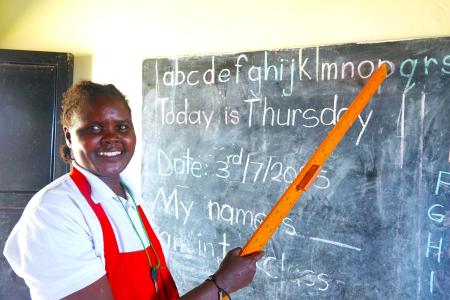 abcdefghijklmnopqrs
Today is Thursday
Date: 3rd/7/2025
My name is
I am in class
F
G
H
I